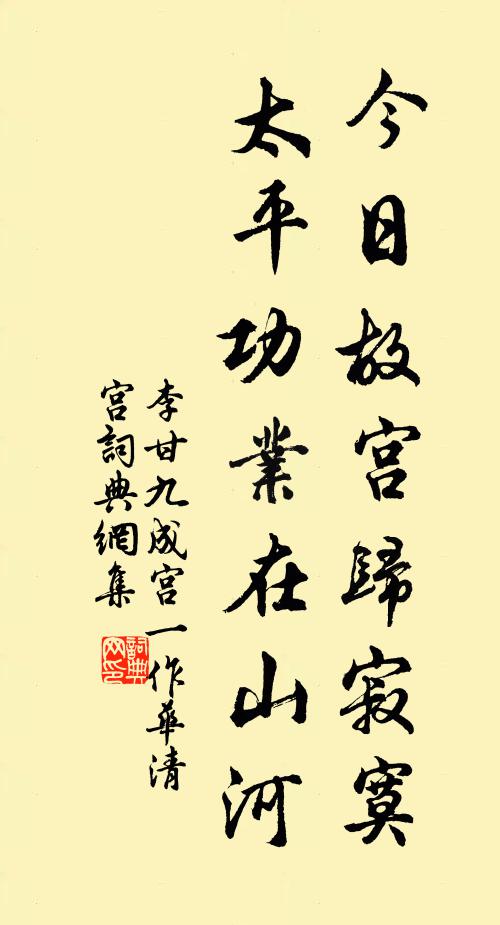 今日故宫歸寂寞
太平功業在山河
李甘九成宫一作華清
宫詞典網集
詞典
网印